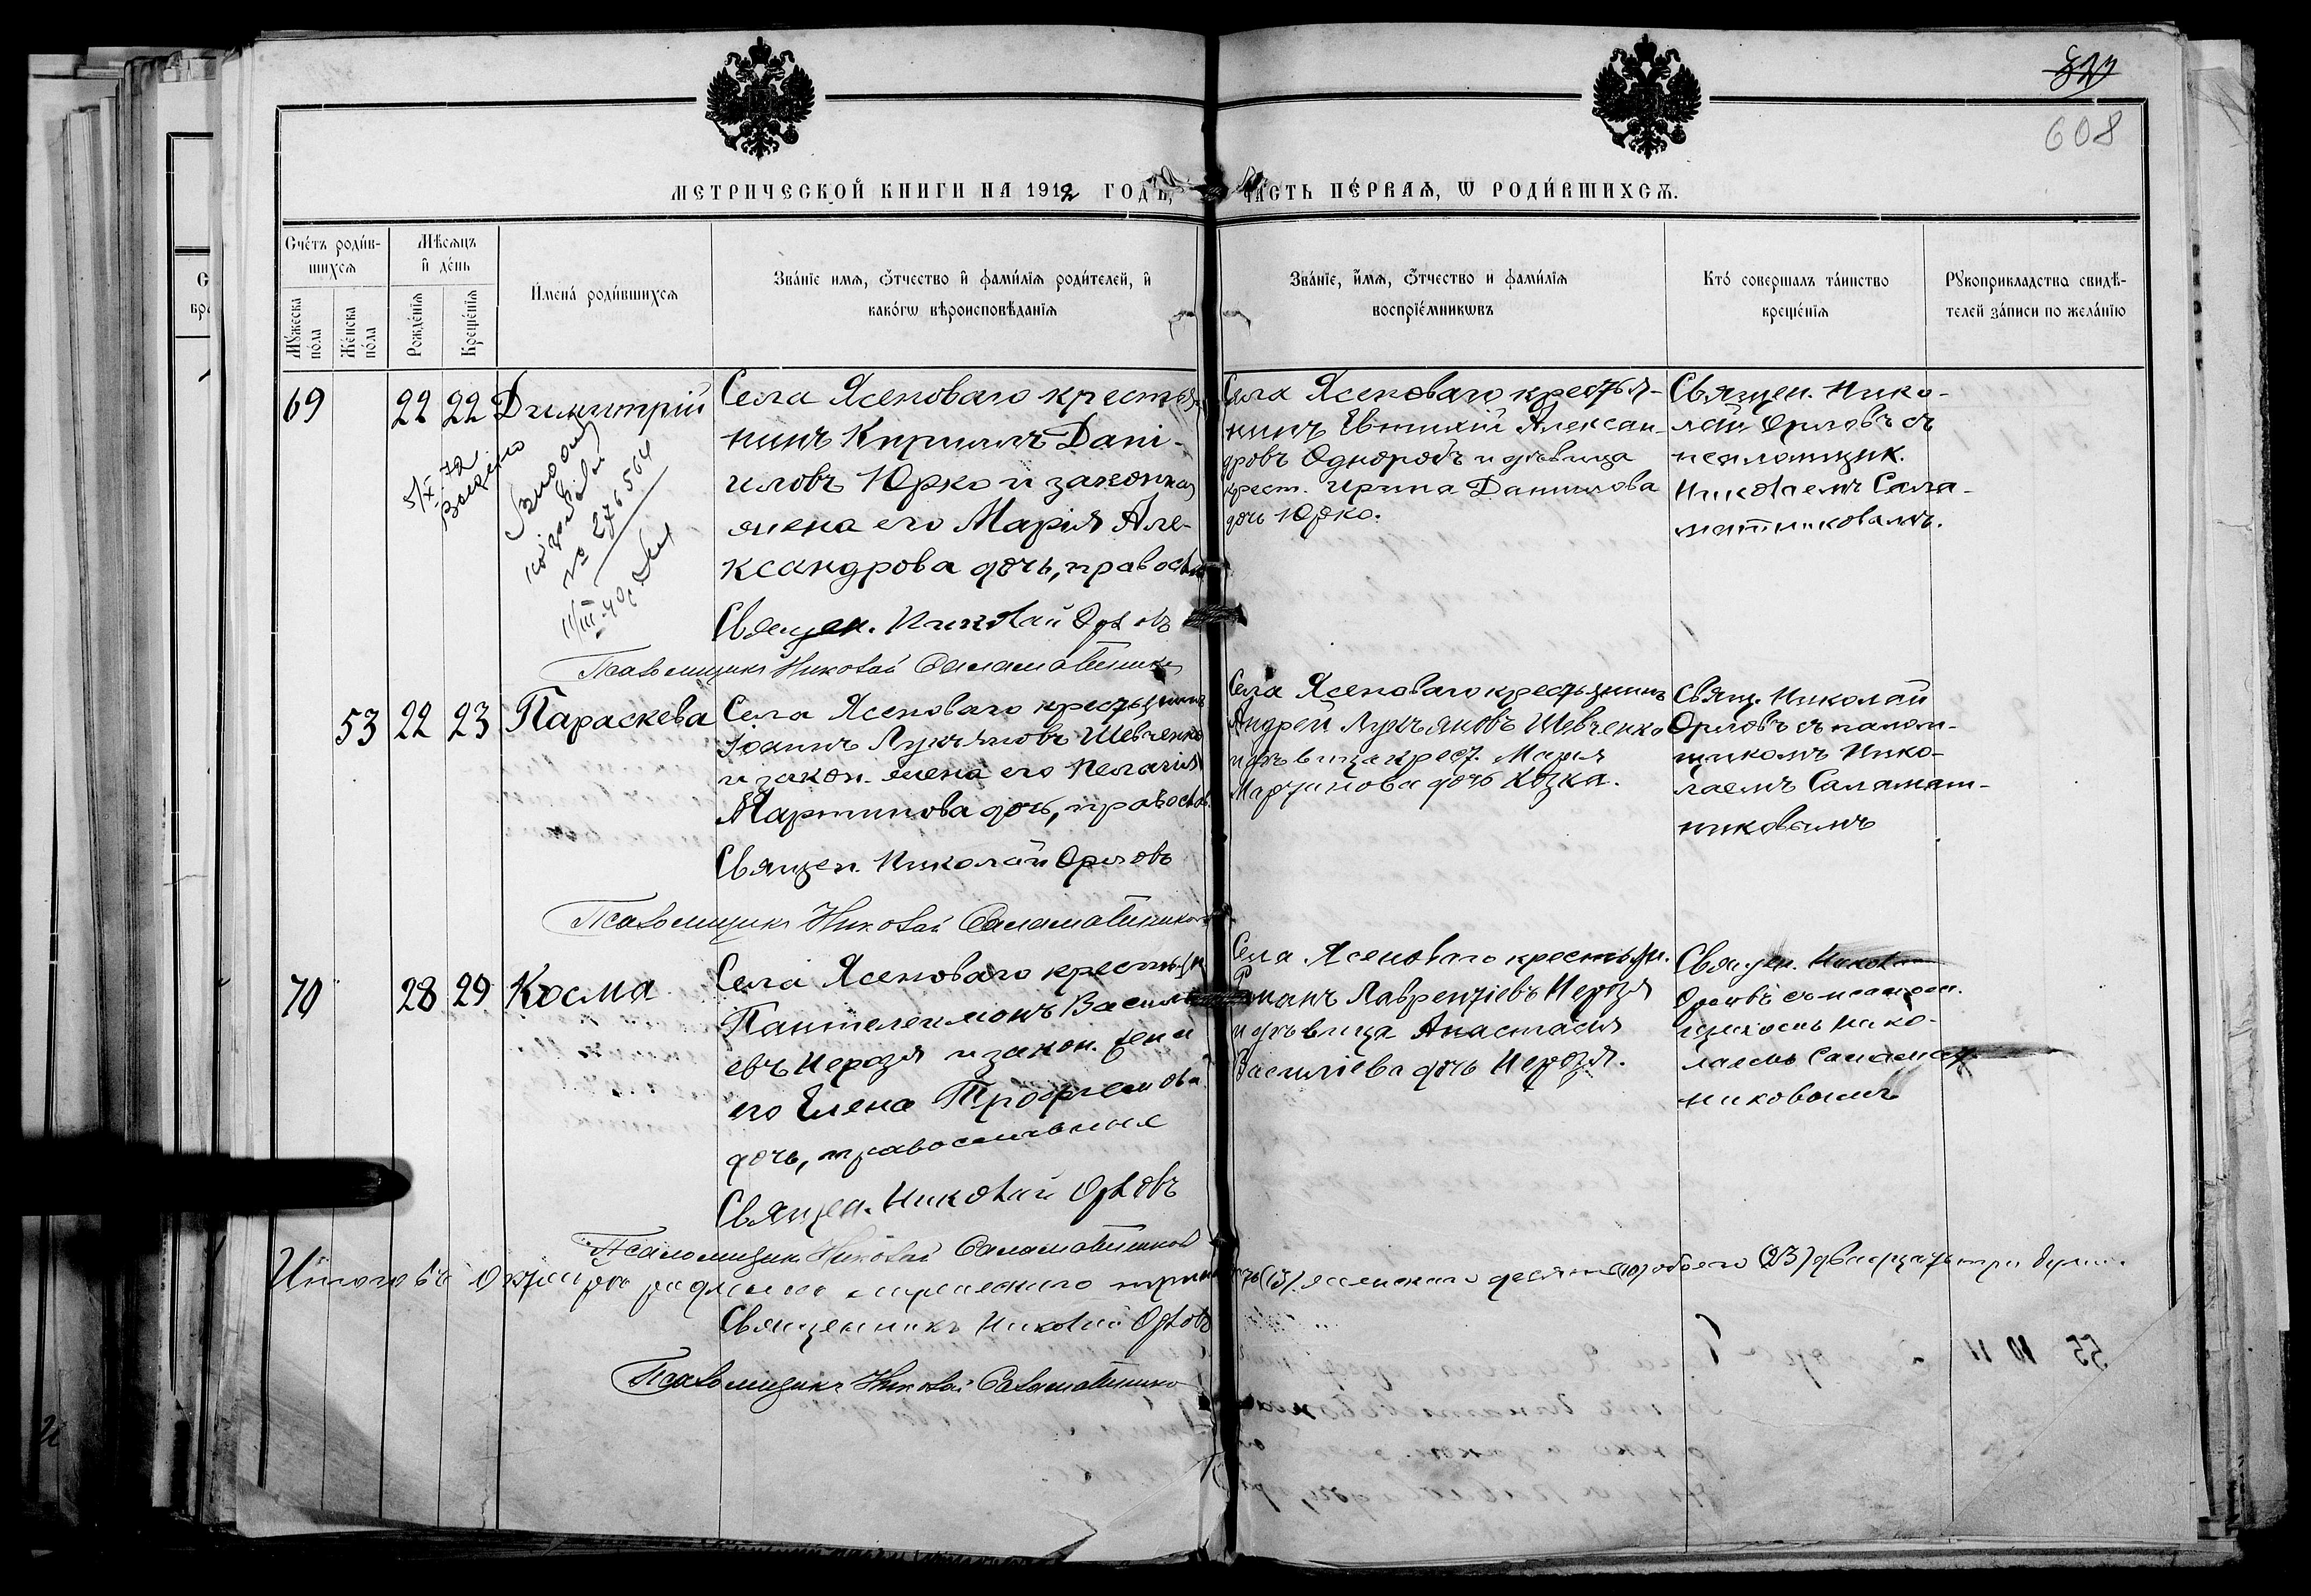 608
МЕТРИЧЕСКОЙ КНИГИ НА 1912 ГОДЪ,
ЧА́СТЬ ПЕ́РВАѦ, Ѡ РОДИ́ВШИХСѦ.
Сче́тъ роди́в-
шихсѧ
Мѣсѧцъ
и҆ де́нь
Мꙋ́жеска
по́ла
Же́нска
по́ла
Рожде́нїѧ
Креще́нїѧ
И҆мена́ роди́вшихсѧ
Зва́нїе имѧ, ѻ҆́тчество и҆ фами́лїѧ роди́телей, и҆
како́гѡ вѣроисповѣ́данїѧ
Зва́нїе, и҆́мѧ, ѻ҆́тчество и фами́лїѧ
воспрїе́мникѡвъ
Кто́ совершалъ та́инство
креще́нїѧ
Рꙋкоприкладство свидѣ́-
телей за́писи по жела́нїю
69
22 22 Димитрій
5/X 72
№ 276564
11/III-40
Села Ясеноваго крестья-
нинъ Кириллъ Дані-
иловъ Юрко и законная
жена его Марія Але-
ксандрова дочь, правосл
Священ. Николай Орловъ
Псаломщикъ Николай Саламатников
Села Ясеноваго крестья-
нинъ Евтихій Алексан-
дровъ Однорогъ и дѣвица
крест. Ирина Данилова
дочь Юрко.
Священ. Нико-
лай Орловъ съ
псаломщик.
Николаемъ Сала-
матниковымъ.
53 22 23 Параскева
Села Ясеноваго крестьянинъ
Іоаннъ Лукьяновъ Шевченко
и закон. жена его Пелагія
Мартинова дочь, правосл.
Священ. Николай Орловъ
Псаломщикъ Николай Саламатников
Села Ясеноваго крестьянинъ
Андрей Лукьяновъ Шевченко
и дѣвица крест. Марія
Мартинова дочь Козка.
Свящ. Николай
Орловъ съ псалом-
щикомъ Нико-
лаемъ Саламат-
никовымъ
70 28 29 Косма
Села Ясеноваго крестьян
Пантелеимонъ Василь
евъ Нерозя и закон. жена
его Елена Трофимова
дочь, православные
Священ. Николай Орловъ
Псаломщикъ Николай Саламатников
Села Ясеноваго крестьян.
Романъ Лаврентіевъ Нерозя
и дѣвица Анастасія
Василіева дочь Нерозя.
Священ. Никол
Орловъ съ псалом.
щикомъ Нико-
лаемъ Саламат-
никовымъ
Итого въ Октябрѣ родилось мужескаго трина
дцать (13) женскаго десять (10) обоего (23) двадцать три души.
Священникъ Николай Орловъ
Псаломщикъ Николай Саламатников